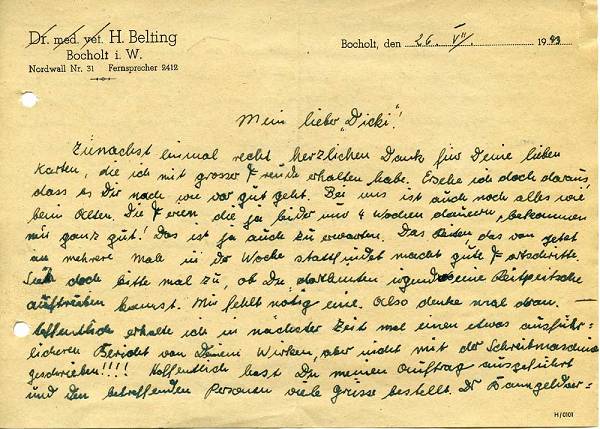 Dr. med. vet. H. Belting
Bocholt i. W.
Nordwall Nr. 31 Fernsprecher 2412
Bocholt, den 26. VII. 1943
Mein lieber „Dicki“!
Zunächst einmal recht herzlichen Dank für Deine lieben
Karten, die ich mit grosser Freude erhalten habe. Ersehe ich doch daraus,
dass es Dir nach wie vor gut geht. Bei uns ist auch noch alles wie
beim Alten. Die Ferien, die ja leider nur 4 Wochen dauern, bekommen
mir ganz gut! Das ist ja auch zu erwarten. Das Reiten das von jetzt
an mehrere Male in der Woche stattfindet macht gute Fortschritte.
Sieh doch bitte mal zu, ob Du dorthinten irgendeine Reitpeitsche
auftreiben kannst. Mir fehlt nötig eine. Also denke mal daran. —
Hoffentlich erhalte ich in nächster Zeit mal einen etwas ausführ=
licheren Bericht von Deinem Wirken, aber nicht mit der Schreibmaschine
geschrieben!!!! Hoffentlich hast Du meinen Auftrag ausgeführt
und den betreffenden Personen viele Grüsse bestellt. Dr
H/0101